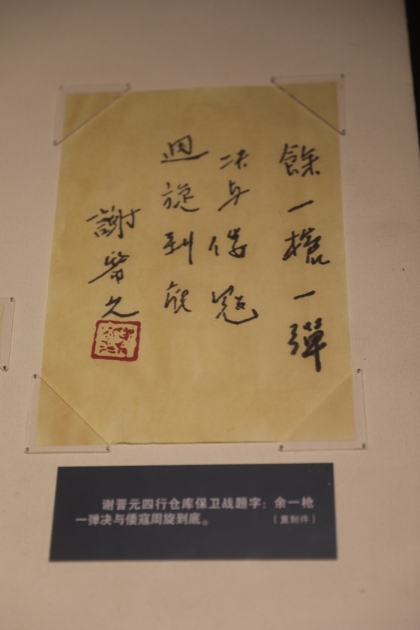 餘一槍一彈
决与倭寇
週旋到底
謝晋元
谢晋元四行仓库保卫战题字：余一枪
一弹决与倭寇周旋到底。（复制件）